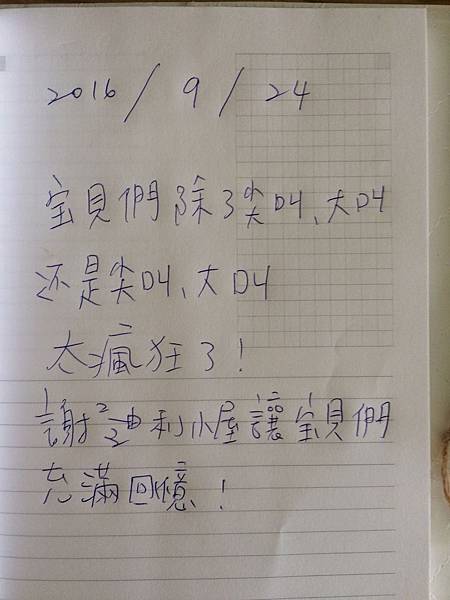 2016 / 9 / 24
宝貝們除了尖叫、大叫
还是尖叫、大叫
太瘋狂了!
謝²迪利小屋讓宝貝們
充滿回憶!